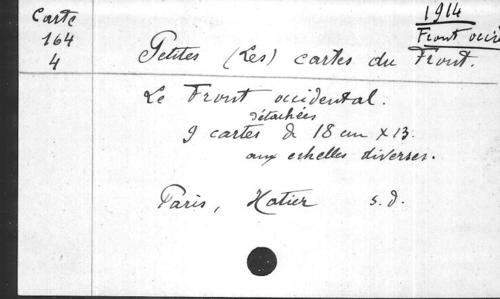 Carte
164
4
1914
Front occid
Petites (Les) cartes du Front.
Le Front occidental.
détachées
9 cartes de 18 cm x 13.
aux echelles diverses.
Paris, Hatier s.d.